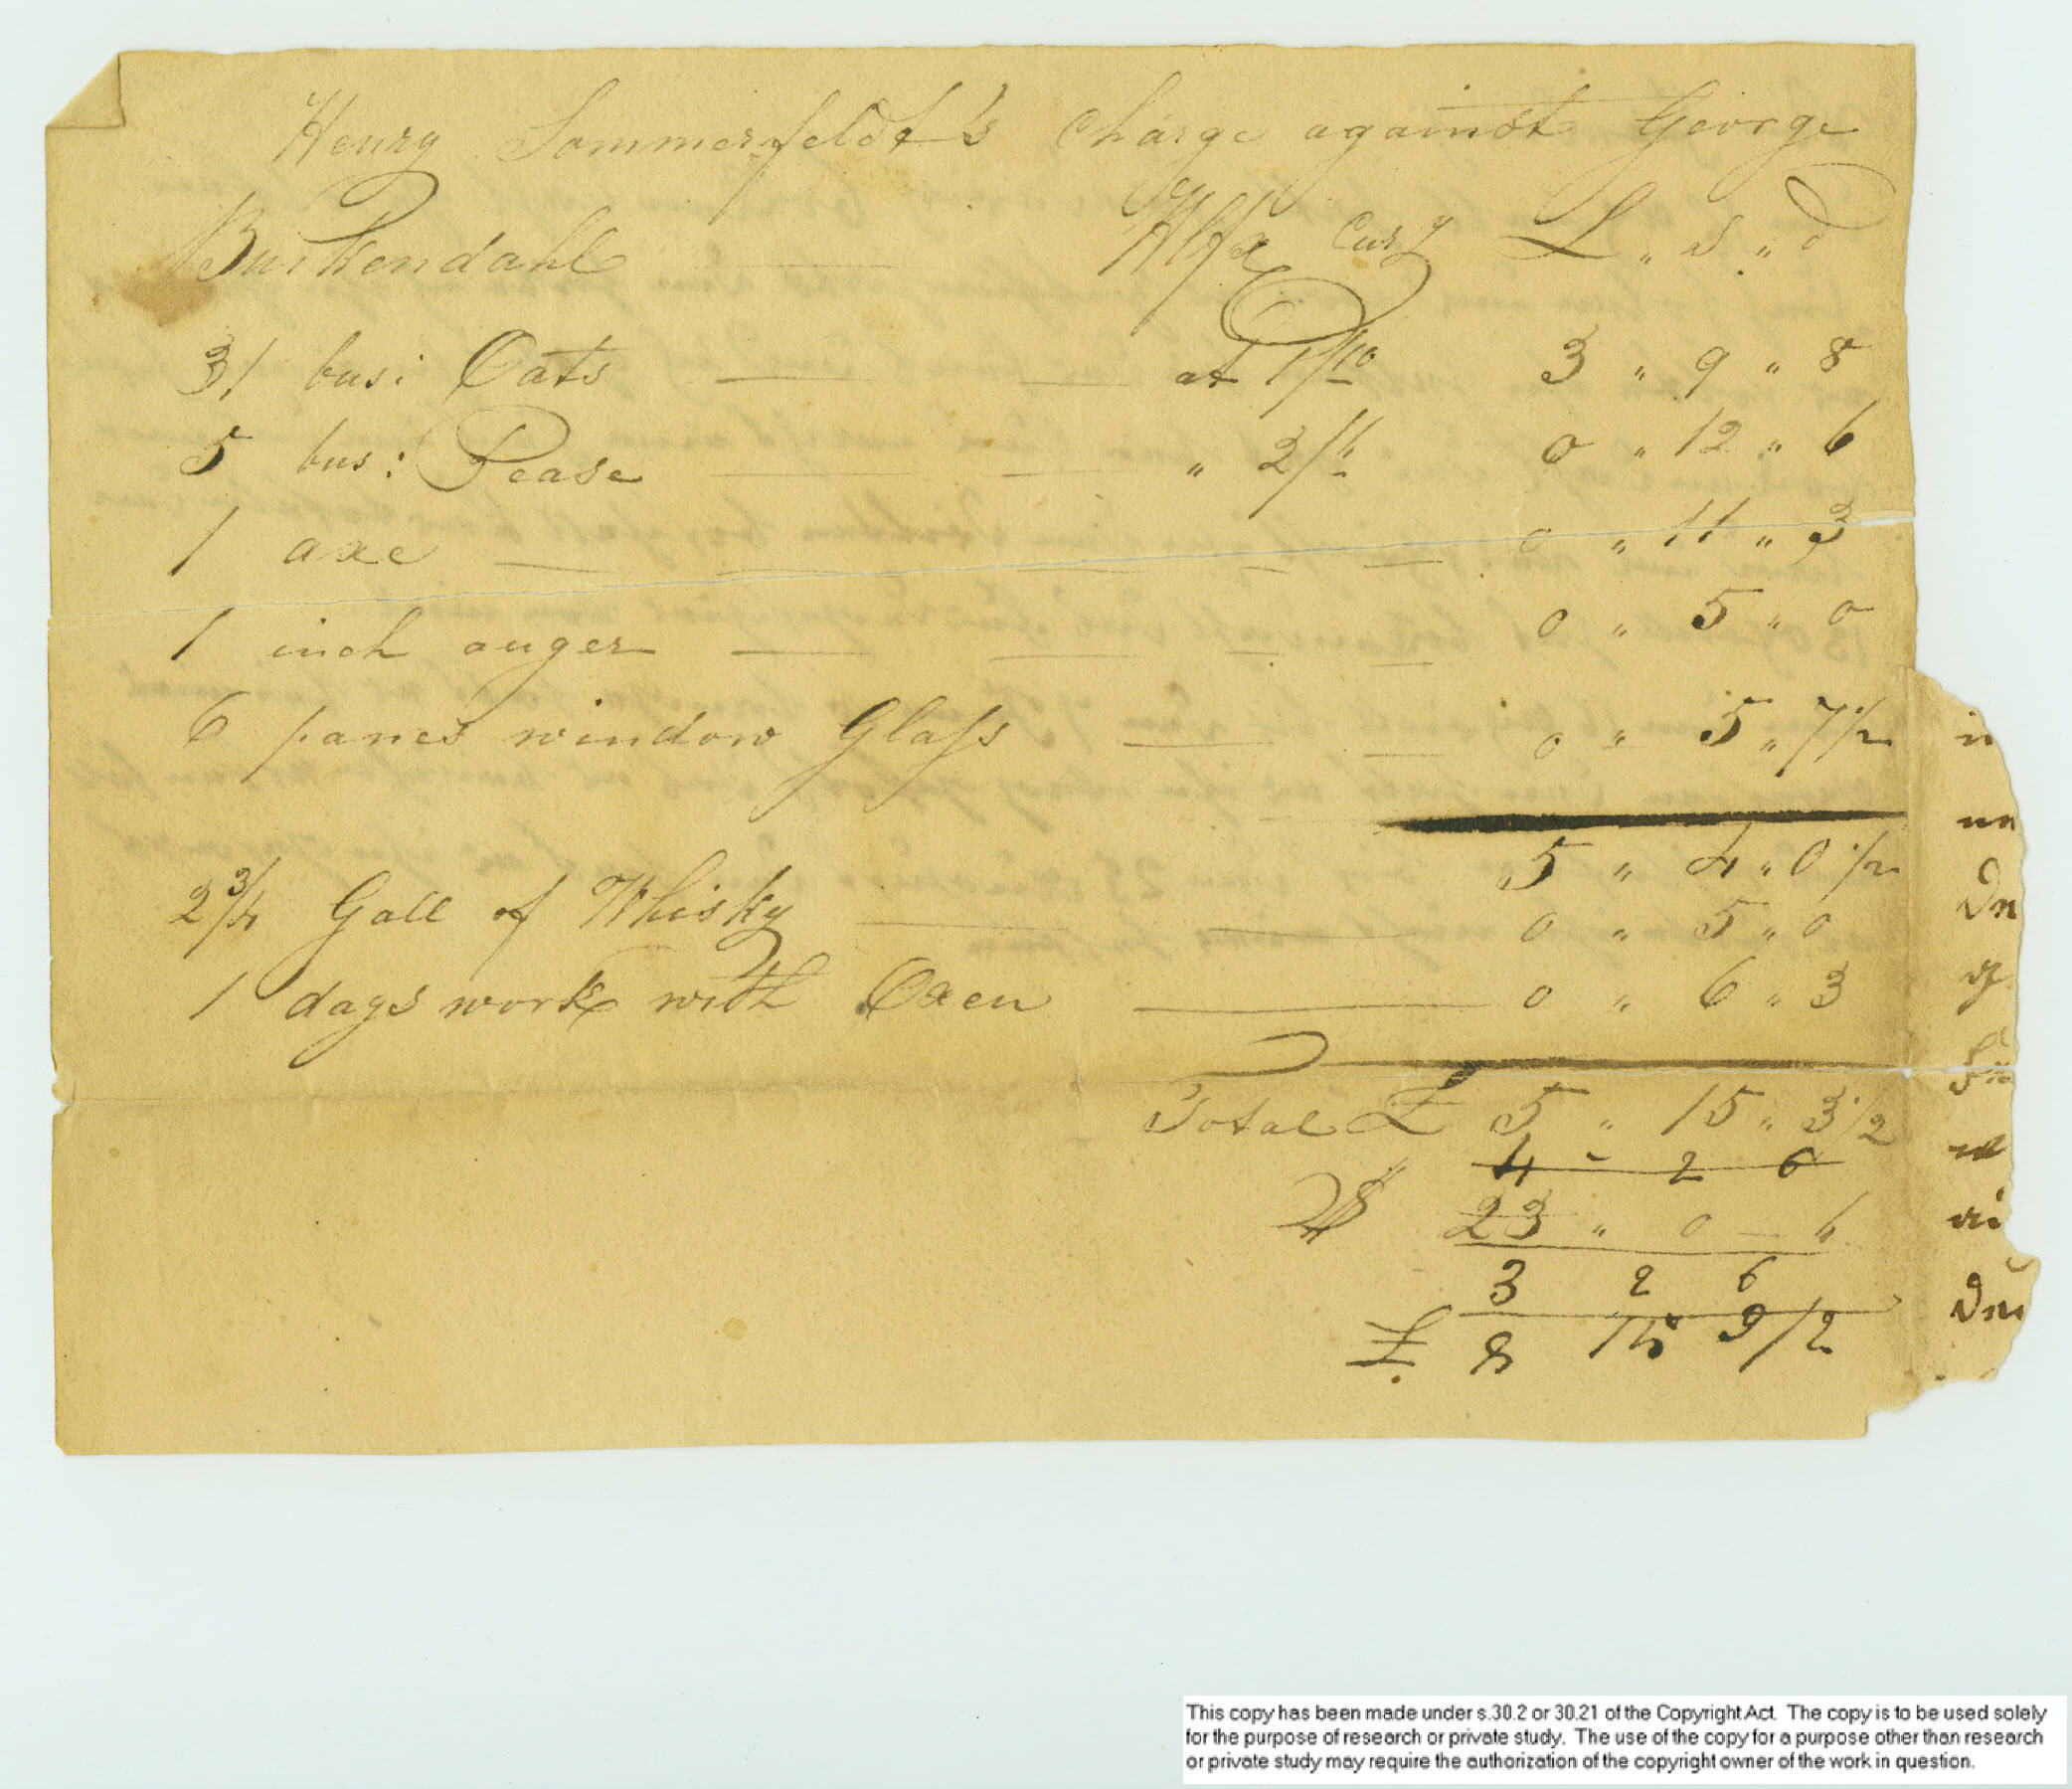 Henry Sommerfeldt's Charge against George
Burkendahl Hlfx Cury £ " s " d
31 bus: Oats at 1/10 3 " 9 " 8
5 bus: Pease " 2/6 0 " 12 " 6
1 axe 0 " 11 " 3
1 inch auger 0 " 5 " 0
6 panes window Glass 0 " 5 " 7 1/2
5 " 4 " 0 1/2
2 3/4 Gall of Whisky 0 " 5 " 0
1 days work with Oxen 0 " 6 " 3
Total £ 5 " 15 " 3 1/2
4 - 2 6
$ 23 " 0 -
3 2 6
£
This copy has been made under s.30.2 or 30.21 of the Copyright Act. The copy is to be used solely
for the purpose of research or private study. The use of the copy for a purpose other than research
or private study may require the authorization of the copyright owner of the work in question.